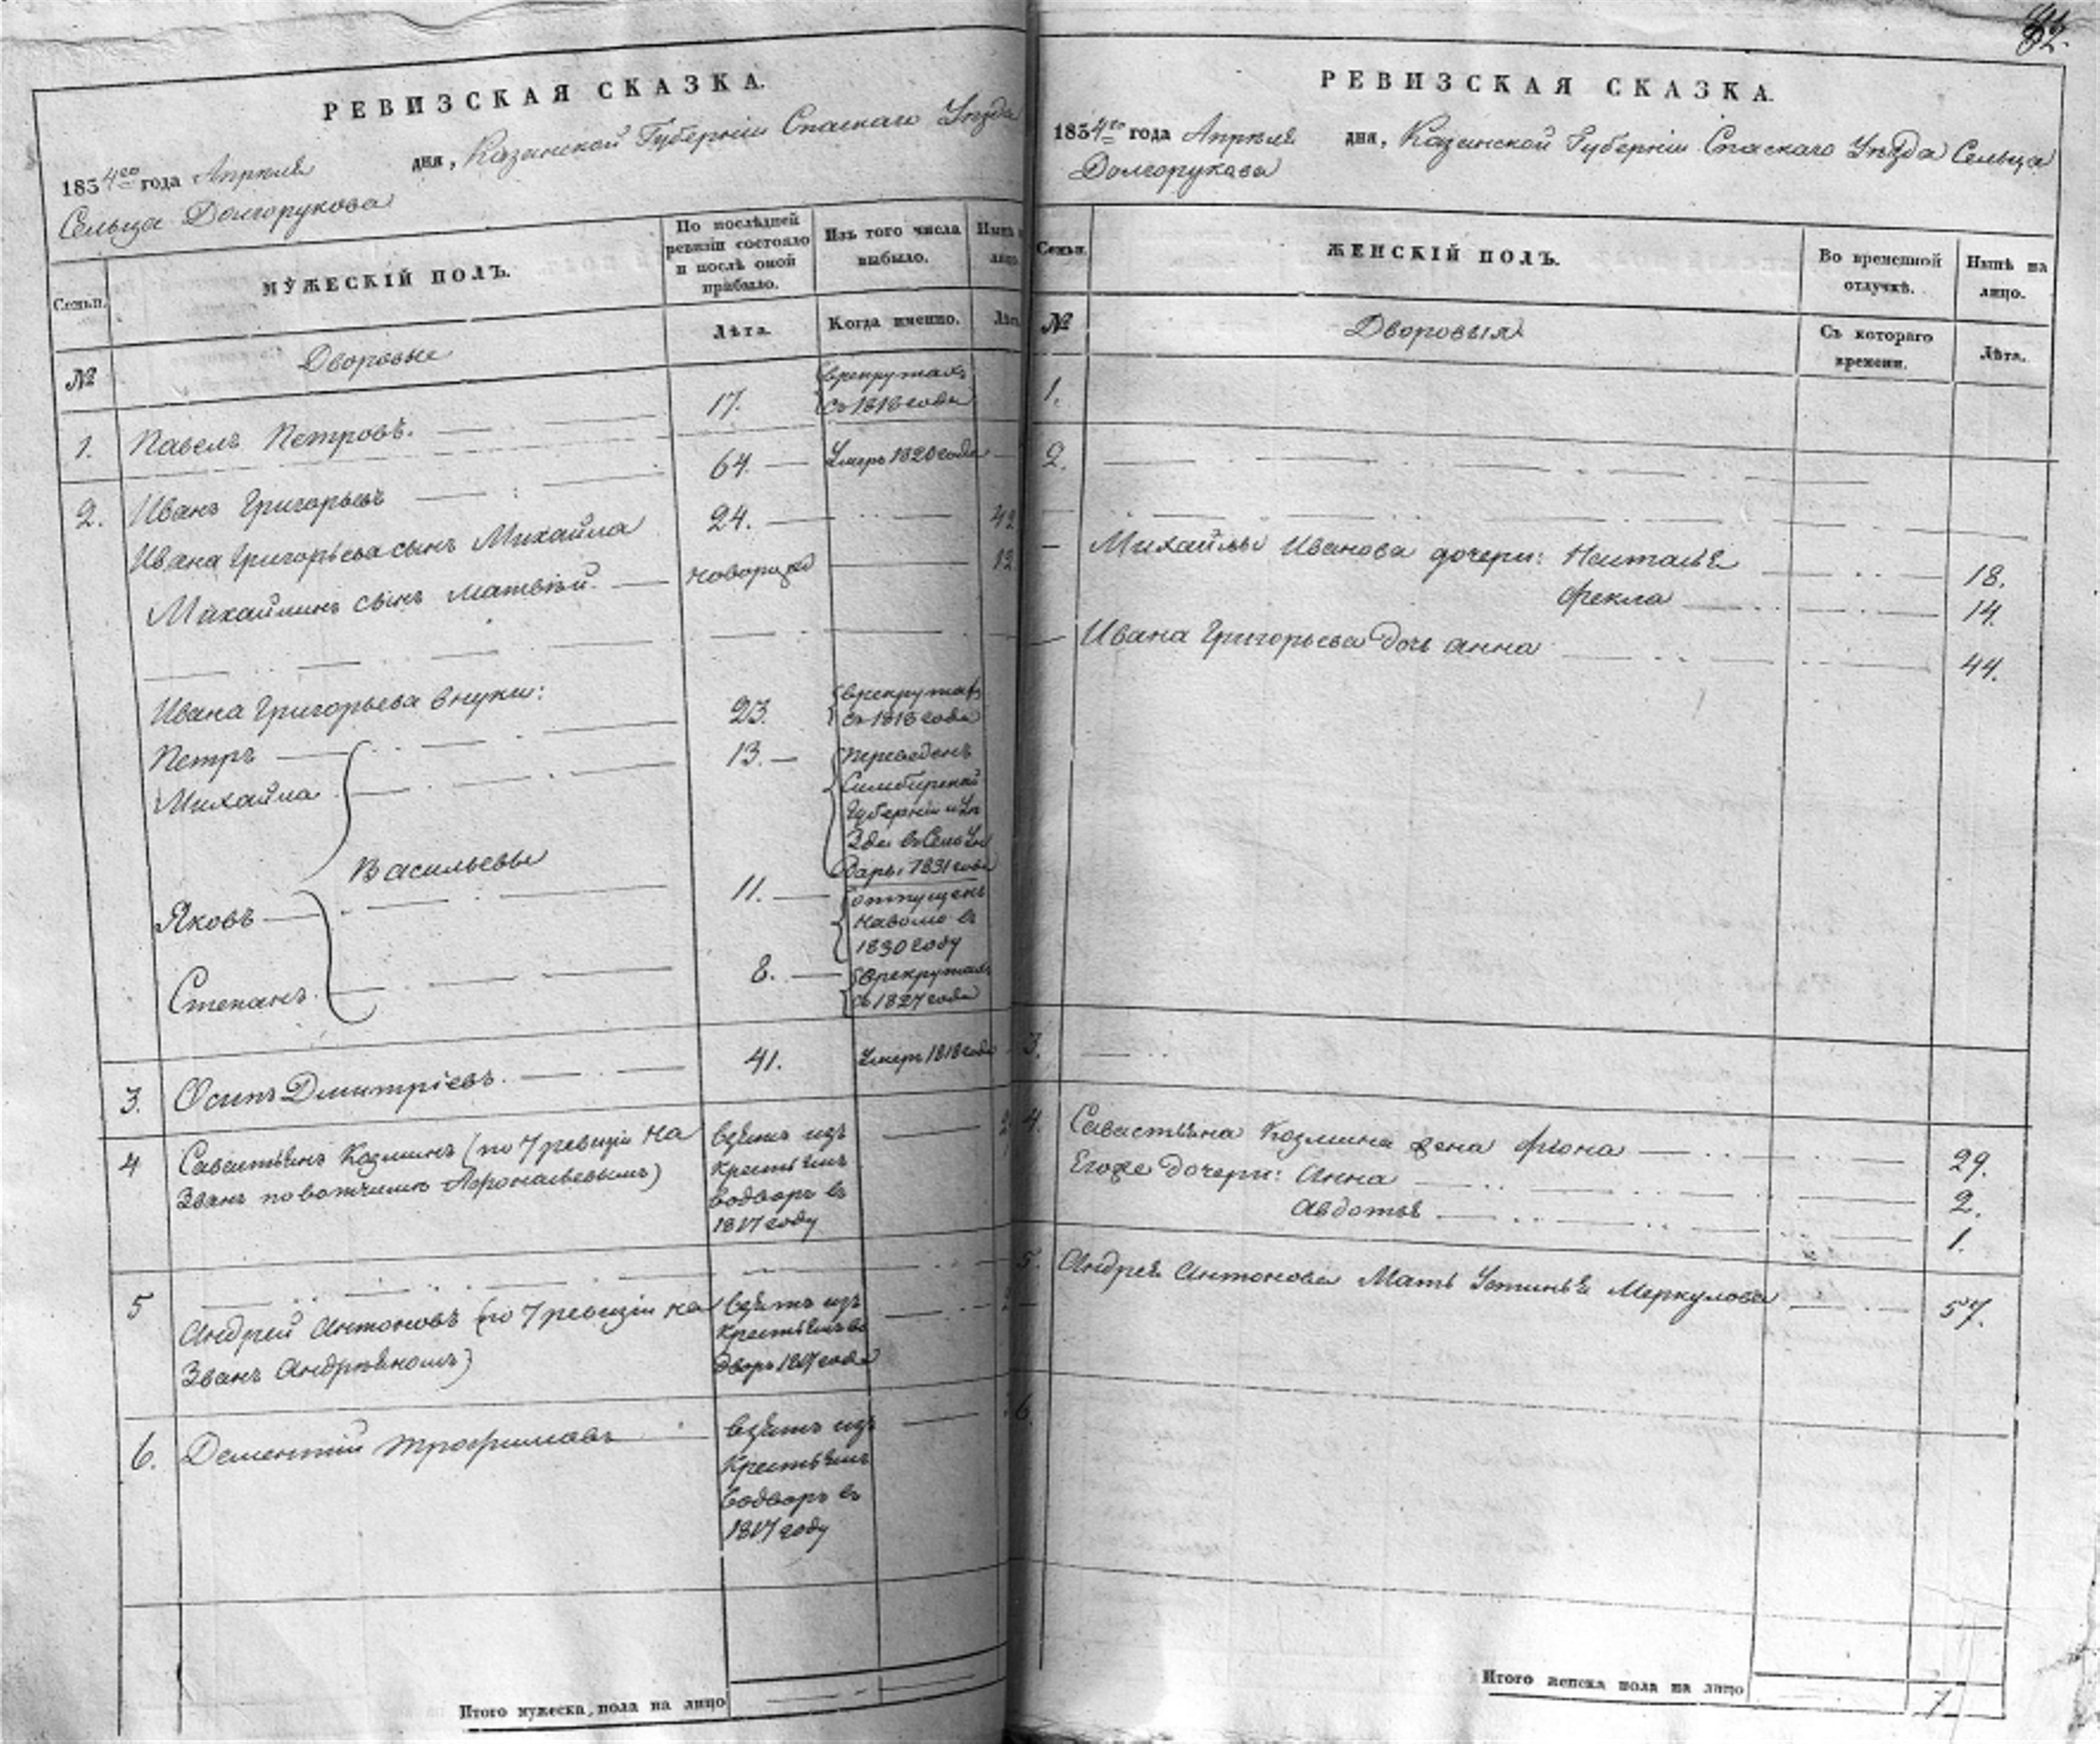 82.
РЕВИЗСКАЯ СКАЗКА.
1834го года Апреля дня, Казанской Губерніи Спаскаго Уезда
Сельца Долгорукова
Семьи. МУЖЕСКІЙ ПОЛЪ. По послѣдней ревизіи состояло и послѣ оной прибыло. Изъ того числа выбыло. Нынѣ на лицо.
№ Дворовые Лѣта. Когда именно. Лѣта
1. Павелъ Петровъ. 17. врекрутахъ
съ 1818 года
2. Иванъ Григорьевъ 64. Умеръ 1820 года
Ивана Григорьева сынъ Михайла 24. 42
Михайлинъ сынъ Матвѣй. новорожд 12
Ивана Григорьева внуки:
Петръ 23. врекрутахъ
съ 1818 года
Михайла 13. Переведенъ
Симбирской
Губерніи и Уе
зда въ Село
1831 года
Васильевы
Яковъ 11. отпущенъ
наволю въ
1830 году
Степанъ 8. врекрутахъ
съ 1827 года
3. Осипъ Дмитріевъ. 41. Умеръ 1818 года
4 Савастьянъ Козминъ (по 7 ревизіи на взятъ изъ
Званъ по вотчиму Афонасьевымъ) крестьянъ
водворъ въ
1817 году
5 Андрей Антоновъ (по 7 ревизіи на взятъ изъ
Званъ Андреяномъ) крестьянъ во
дворъ 1817 года
6. Дементій Трофимовъ взятъ изъ
крестьянъ
водворъ въ
1817 году
Итого мужеска пола на лицо
РЕВИЗСКАЯ СКАЗКА.
1834го года Апреля дня, Казанской Губерніи Спаскаго Уезда Сельца
Долгорукова
Семьи. ЖЕНСКІЙ ПОЛЪ. Во временной отлучкѣ. Нынѣ на лицо.
№ Дворовыя Съ котораго времени. Лѣта.
1.
2.
Михайлы Иванова дочери: Наталья 18.
Фекла 14.
Ивана Григорьева дочь анна 44.
3.
4. Савастьяна Козмина жена Фіона 29.
Егоже дочери: Анна 2.
Авдотья 1.
5. Андрея Антонова Мать Устинья Меркулова 57.
6.
Итого женска пола на лицо 7